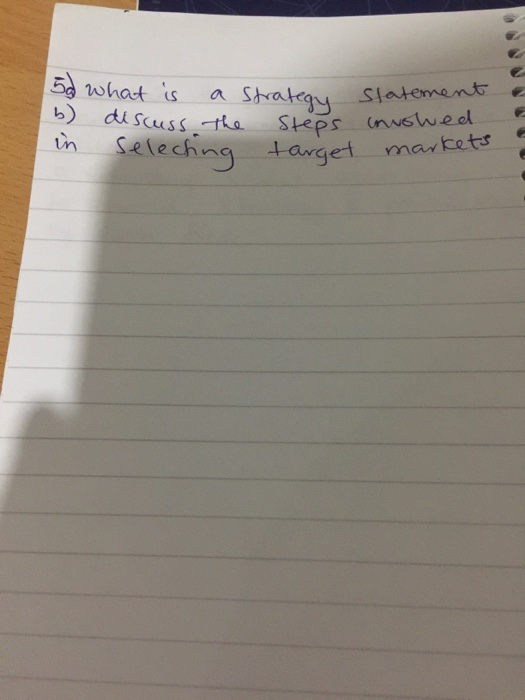 5a) what is a strategy statement
b) discuss the steps involved
in selecting target markets